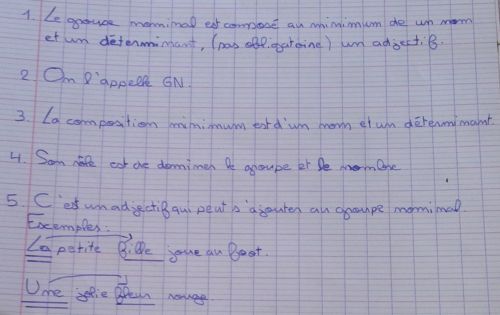 1. Le groupe nominal est composé au minimum de un nom
et un déterminant, (pas obligatoire) un adjectif.
2. On l'appelle GN.
3. La composition minimum est d'un nom et un déterminant.
4. Son rôle est de donner le groupe et le nombre
5. C'est un adjectif qui peut s'ajouter au groupe nominal.
Exemples:
La petite fille joue au foot.
Une jolie fleur rouge.